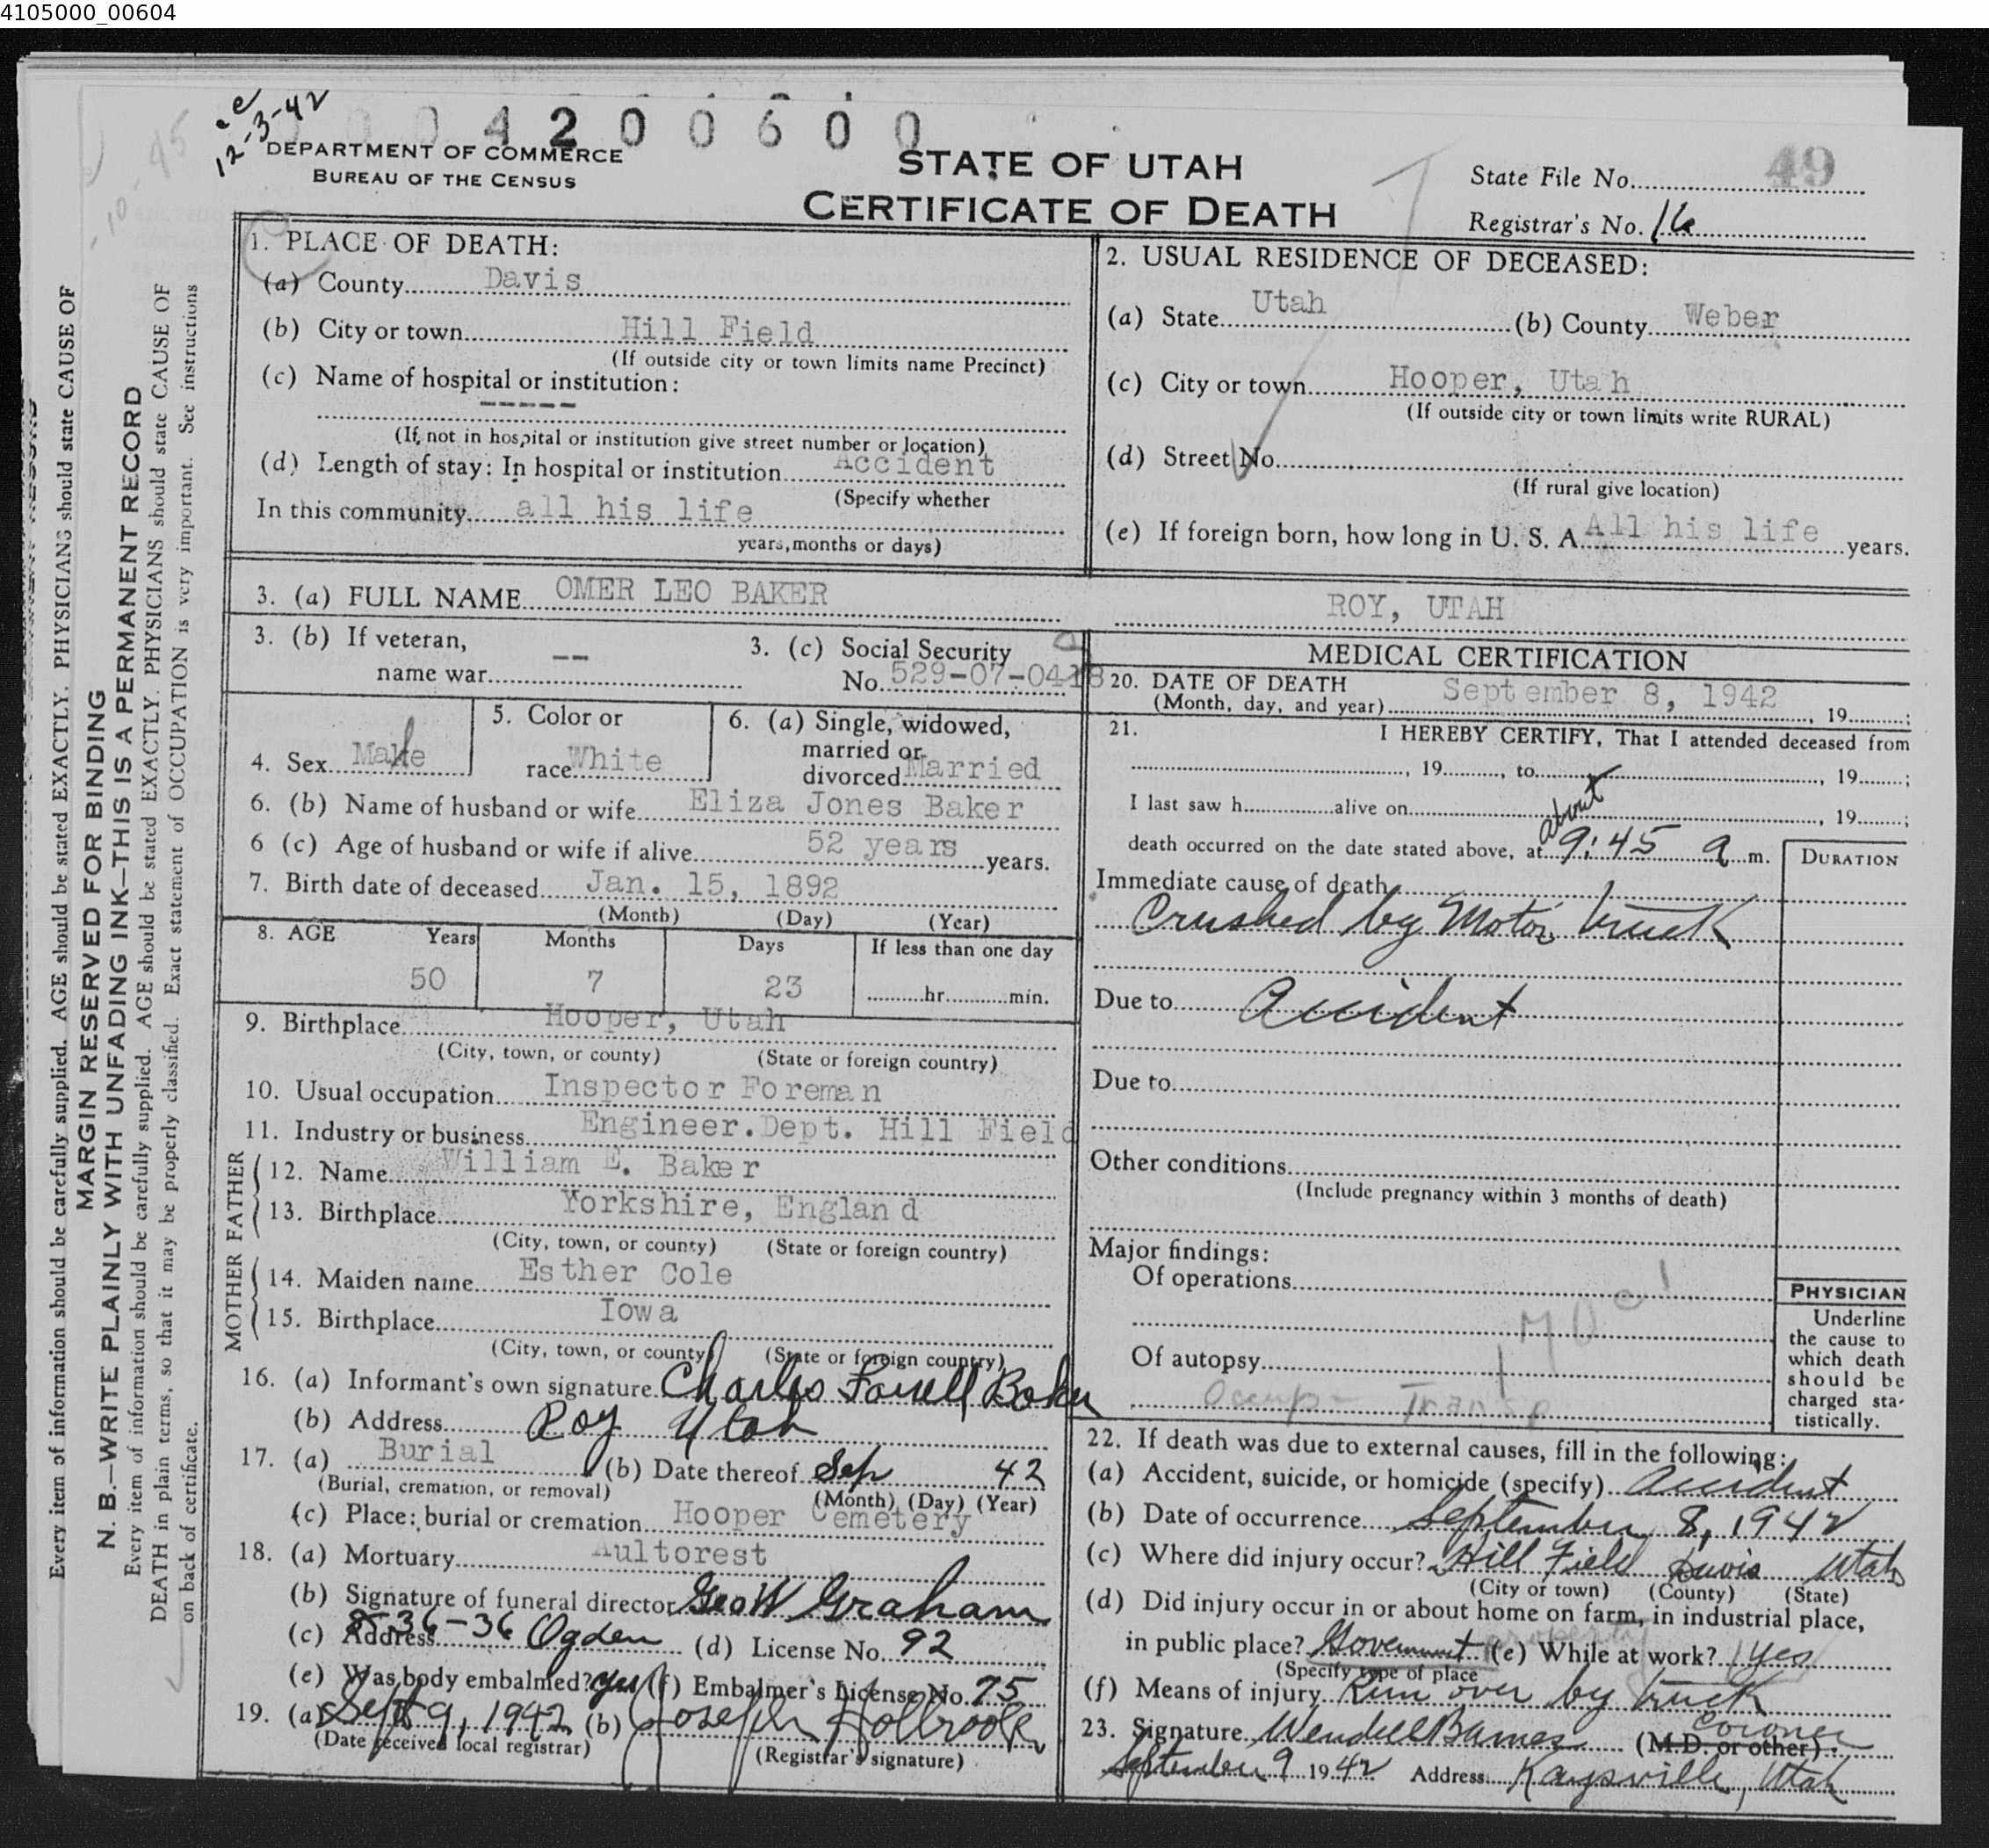 4105000_00604
cc
12-3-42
4 2 0 0 6 0 0
DEPARTMENT OF COMMERCE
BUREAU OF THE CENSUS
STATE OF UTAH
CERTIFICATE OF DEATH
State File No. 49
Registrar's No. 16
Every item of information should be carefully supplied. AGE should be stated EXACTLY. PHYSICIANS should state CAUSE OF
MARGIN RESERVED FOR BINDING
N. B.—WRITE PLAINLY WITH UNFADING INK—THIS IS A PERMANENT RECORD
Every item of information should be carefully supplied. AGE should be stated EXACTLY. PHYSICIANS should state CAUSE OF
DEATH in plain terms, so that it may be properly classified. Exact statement of OCCUPATION is very important. See instructions
on back of certificate.
1. PLACE OF DEATH:
(a) County Davis
(b) City or town Hill Field
(If outside city or town limits name Precinct)
(c) Name of hospital or institution:
-----
(If not in hospital or institution give street number or location)
(d) Length of stay: In hospital or institution Accident
(Specify whether
In this community all his life
years, months or days)
2. USUAL RESIDENCE OF DECEASED:
(a) State Utah (b) County Weber
(c) City or town Hooper, Utah
(If outside city or town limits write RURAL)
(d) Street No.
(If rural give location)
(e) If foreign born, how long in U. S. A. All his life years.
3. (a) FULL NAME OMER LEO BAKER ROY, UTAH
3. (b) If veteran,
name war --
3. (c) Social Security
No. 529-07-0418
4. Sex Male
5. Color or
race White
6. (a) Single, widowed,
married or
divorced Married
6. (b) Name of husband or wife Eliza Jones Baker
6 (c) Age of husband or wife if alive 52 years years.
7. Birth date of deceased Jan. 15, 1892
(Month) (Day) (Year)
8. AGE Years Months Days If less than one day
50 7 23 hr. min.
9. Birthplace Hooper, Utah
(City, town, or county) (State or foreign country)
10. Usual occupation Inspector Foreman
11. Industry or business Engineer. Dept. Hill Field
FATHER
12. Name William E. Baker
13. Birthplace Yorkshire, England
(City, town, or county) (State or foreign country)
MOTHER
14. Maiden name Esther Cole
15. Birthplace Iowa
(City, town, or county) (State or foreign country)
16. (a) Informant's own signature Charles Farrell Baker
(b) Address Roy Utah
17. (a) Burial (b) Date thereof Sep 42
(Burial, cremation, or removal) (Month) (Day) (Year)
(c) Place: burial or cremation Hooper Cemetery
18. (a) Mortuary Aultorest
(b) Signature of funeral director Geo W Graham
(c) Address 36-36 Ogden (d) License No. 92
(e) Was body embalmed? yes (f) Embalmer's License No. 75
19. (a) Sept 9, 1942 (b) Joseph Holbrook
(Date received local registrar) (Registrar's signature)
MEDICAL CERTIFICATION
20. DATE OF DEATH
(Month, day, and year) September 8, 1942, 19 ;
21. I HEREBY CERTIFY, That I attended deceased from
, 19 , to , 19 ;
I last saw h alive on , 19 ;
about
death occurred on the date stated above, at 9:45 a m.
DURATION
Immediate cause of death
Crushed by Motor truck
Due to Accident
Due to
Other conditions
(Include pregnancy within 3 months of death)
Major findings:
Of operations
170c
Of autopsy
Occup - Transp
PHYSICIAN
Underline
the cause to
which death
should be
charged sta-
tistically.
22. If death was due to external causes, fill in the following:
(a) Accident, suicide, or homicide (specify) Accident
(b) Date of occurrence September 8, 1942
(c) Where did injury occur? Hill Field Davis Utah
(City or town) (County) (State)
(d) Did injury occur in or about home on farm, in industrial place,
in public place? Government property (e) While at work? Yes
(Specify type of place
(f) Means of injury Run over by truck
23. Signature Wendell Barnes (M.D. or other) Coroner
September 9 1942 Address Kaysville, Utah